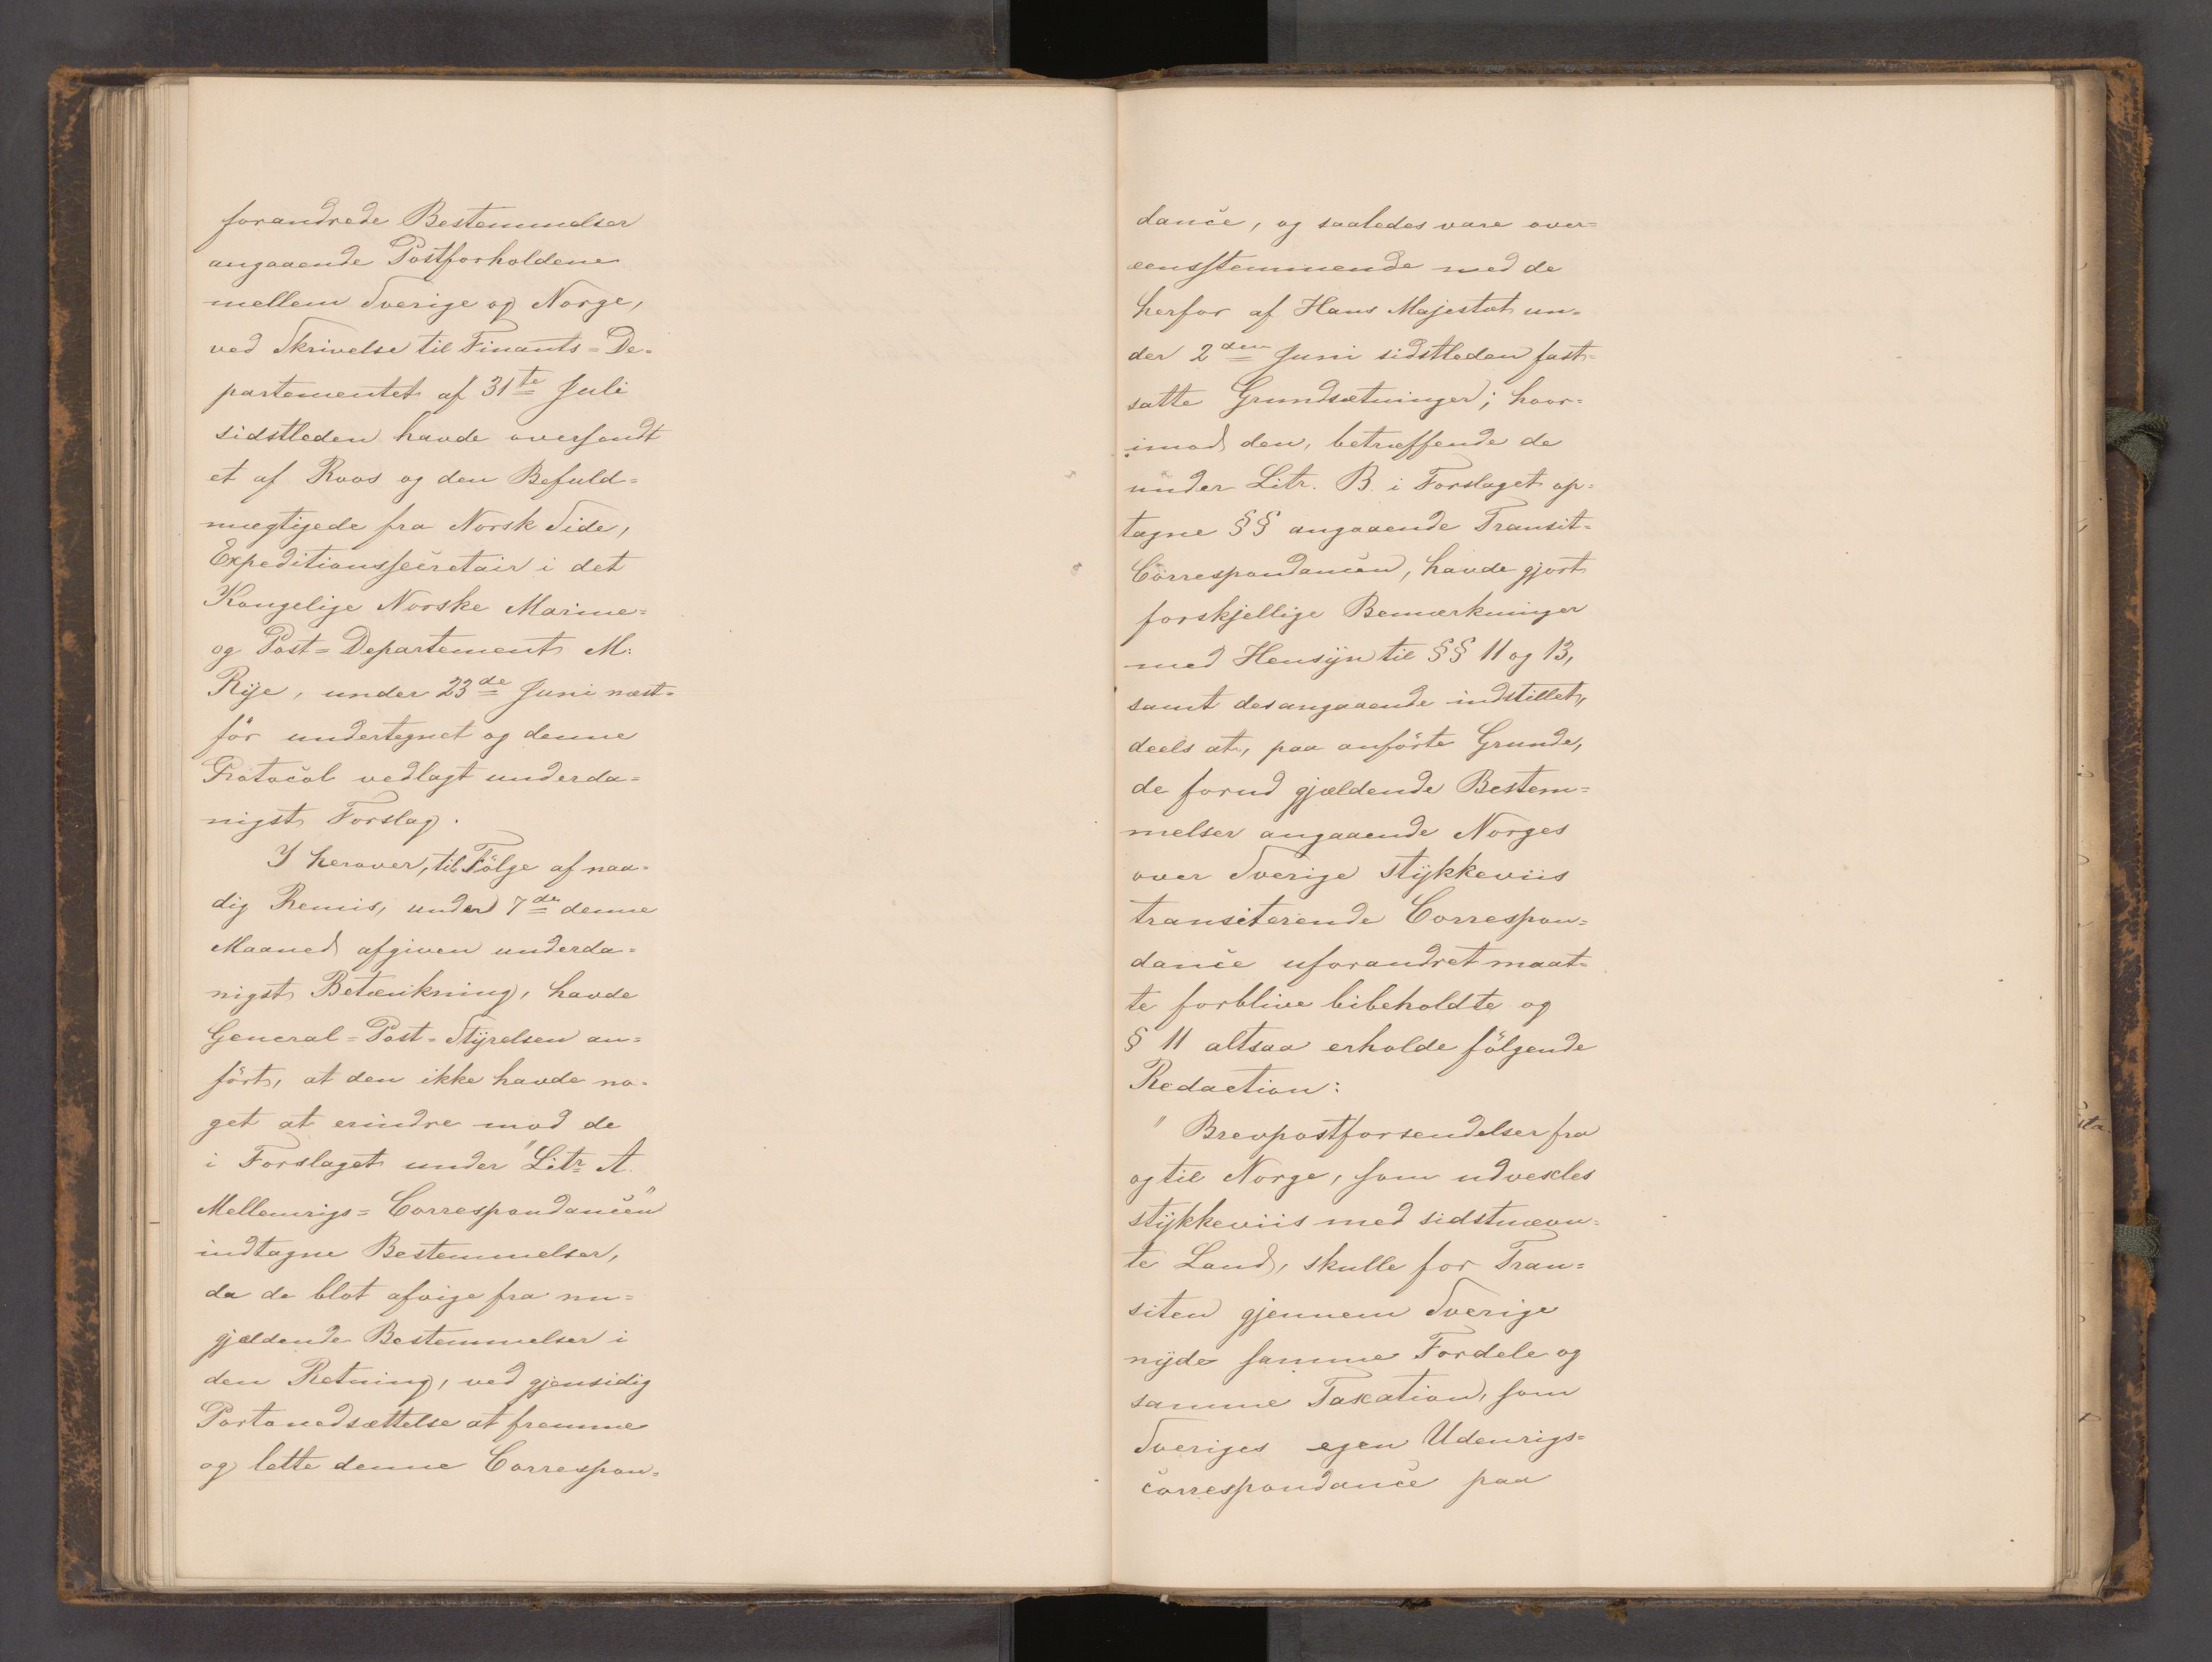 forandrede Bestemmelser
angaaende Postforholdene
mellem Sverige og Norge,
ved Skrivelse til Finants=De=
partementet af 31te Juli
sidstleden havde oversendt
et af Roos og den Befuld=
mægtigede fra Norsk Side,
Expeditionssecretair i det
Kongelige Norske Marine=
og Post=Departement M:
Rije, under 23de Juni næst=
før undertegnet og denne
Protocol vedlagt underda=
nigst Forslag.
I herover, til Følge af naa=
dig Remis, under 7de denne
Maaned afgiven underda=
nigst Betænkning, havde
General=Post=Styrelsen an=
ført, at den ikke havde no=
get at erindre mod de
i Forslaget under "Litr A.
Mellemrigs=Correspondancen"
indtagne Bestemmelser,
da de blot afvige fra nu=
gjældende Bestemmelser i
den Retning, ved gjensidig
Portonedsættelse at fremme
og lette denne Correspon=
dance, og saaledes vare over=
eensstemmende med de
herfor af Hans Majestæt un=
der 2den Juni sidstleden fast=
satte Grundsætninger; hvor=
imod den, betræffende de
under Litr. B. i Forslaget op=
tagne §§ angaaende Transit=
Correspondancen, havde gjort
forskjellige Bemærkninger
med Hensyn til §§ 11 og 13,
samt desangaaende indstillet,
deels at, paa anførte Grunde,
de forud gjældende Bestem=
melser angaaende Norges
over Sverige stykkeviis
transiterende Correspon=
dance uforandret maat=
te forblive bibeholdte og
§ 11 altsaa erholde følgende
Redaction:
" Brevpostforsendelser fra
og til Norge, som udvexles
stykkeviis med sidstnævn=
te Land, skulle for Tran=
siten gjennem Sverige
nyde samme Fordele og
samme Taxation, som
Sveriges egen Udenrigs=
correspondance paa